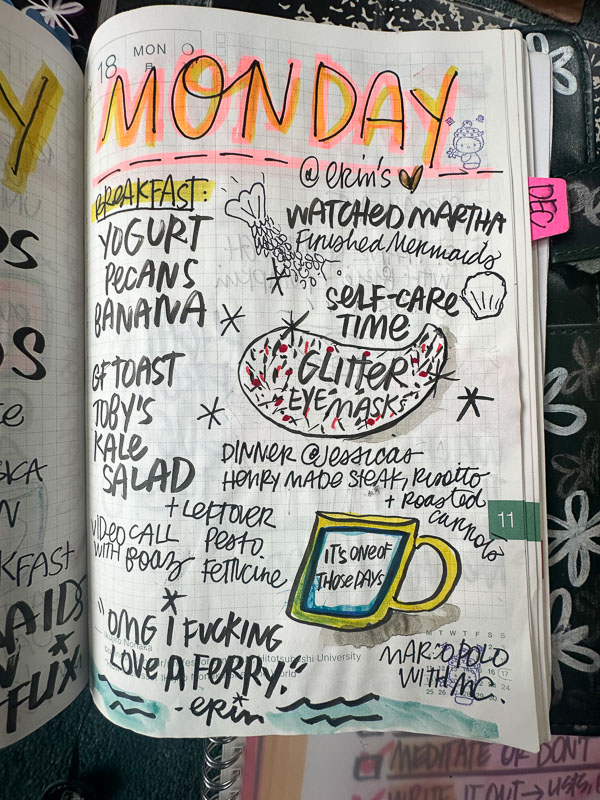 18 MON
月
MONDAY
@ erin's
BREAKFAST:
YOGURT
PECANS
BANANA
GF TOAST
TOBY'S
KALE
SALAD
+ LEFTOVER
PESTO
FETTUCINE
VIDEO CALL
WITH BOAZ
WATCHED MARTHA
Finished Mermaids
SELF-CARE
TIME
GLITTER
EYE MASKS
DINNER @ JESSICAS
HENRY MADE STEAK, RISOTTO
+ ROASTED
CARROTS
IT'S ONE OF
THOSE DAYS
"OMG I FUCKING
LOVE A FERRY."
- erin
MARCO POLO
WITH MC.
Hitotsubashi University
M T W T F S S
DEC
11
Y
KFAST
FLUX
MEDITATE OR DON'T
WRITE IT OUT → LISTS,